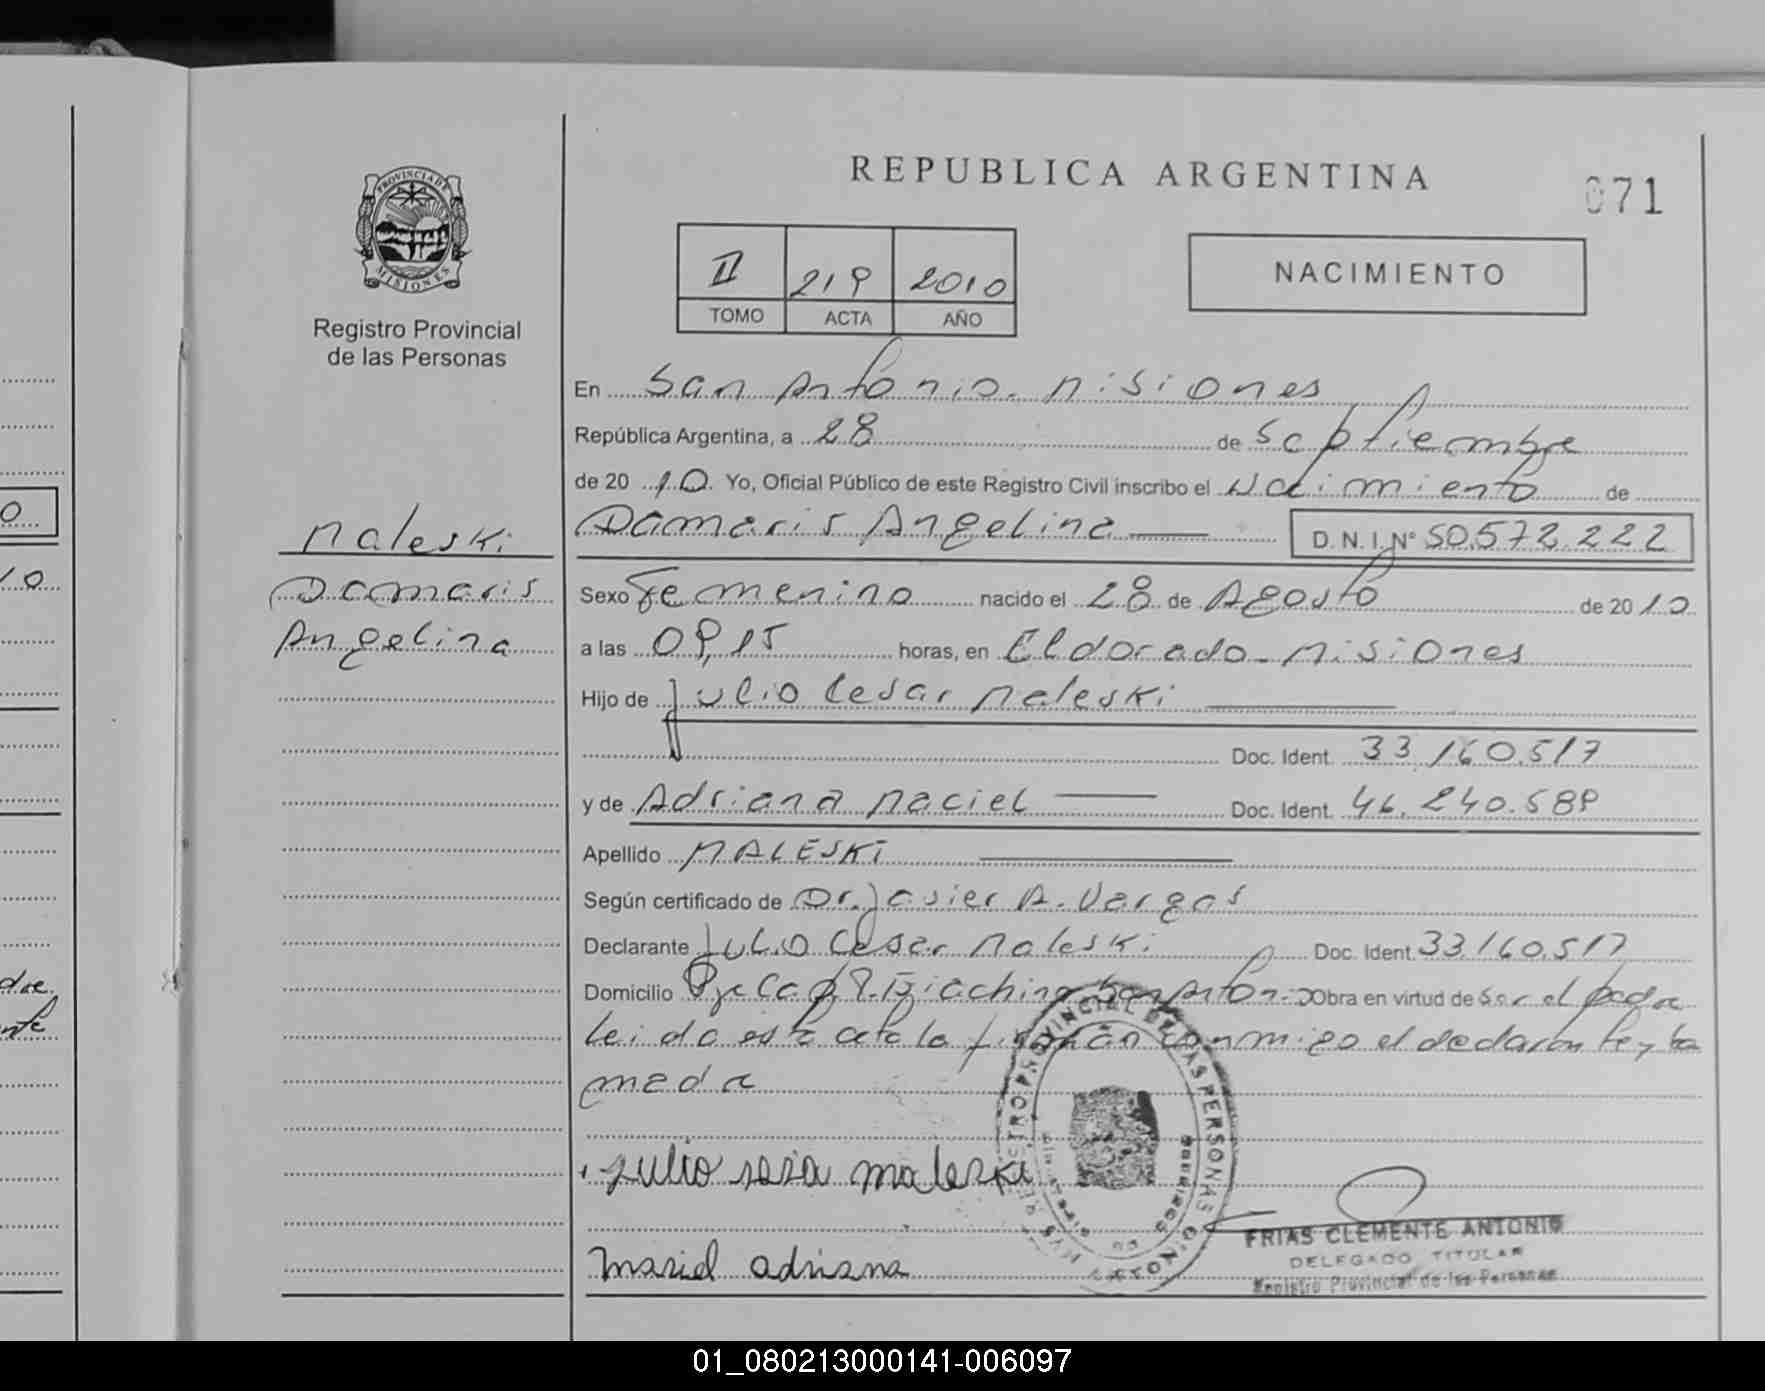 REPUBLICA ARGENTINA
071
PROVINCIA DE
MISIONES
Registro Provincial
de las Personas
II 219 2010
TOMO ACTA AÑO
NACIMIENTO
En San Antonio. Misiones
República Argentina, a 28 de Septiembre
de 2010. Yo, Oficial Público de este Registro Civil inscribo el Nacimiento de
Damaris Angelina
D. N. I. Nº 50.572.222
Maleski
Damaris
Angelina
Sexo Femenino nacido el 28 de Agosto de 2010
a las 09,15 horas, en Eldorado - Misiones
Hijo de Julio Cesar Maleski
Doc. Ident. 33.160.517
y de Adriana Maciel Doc. Ident. 46.240.589
Apellido MALESKI
Según certificado de Dr. Javier A. Vargas
Declarante Julio Cesar Maleski Doc. Ident. 33.160.517
Domicilio Pje Cap. Giachino San Antonio Obra en virtud de Ser el padre
Leida esta acta la firman conmigo el declarante y la
madre
julio sesa maleski
mariel adriana
REGISTRO PROVINCIAL DE LAS PERSONAS
FRIAS CLEMENTE ANTONIO
DELEGADO TITULAR
Registro Provincial de las Personas
0
10
dre
nte
01_080213000141-006097